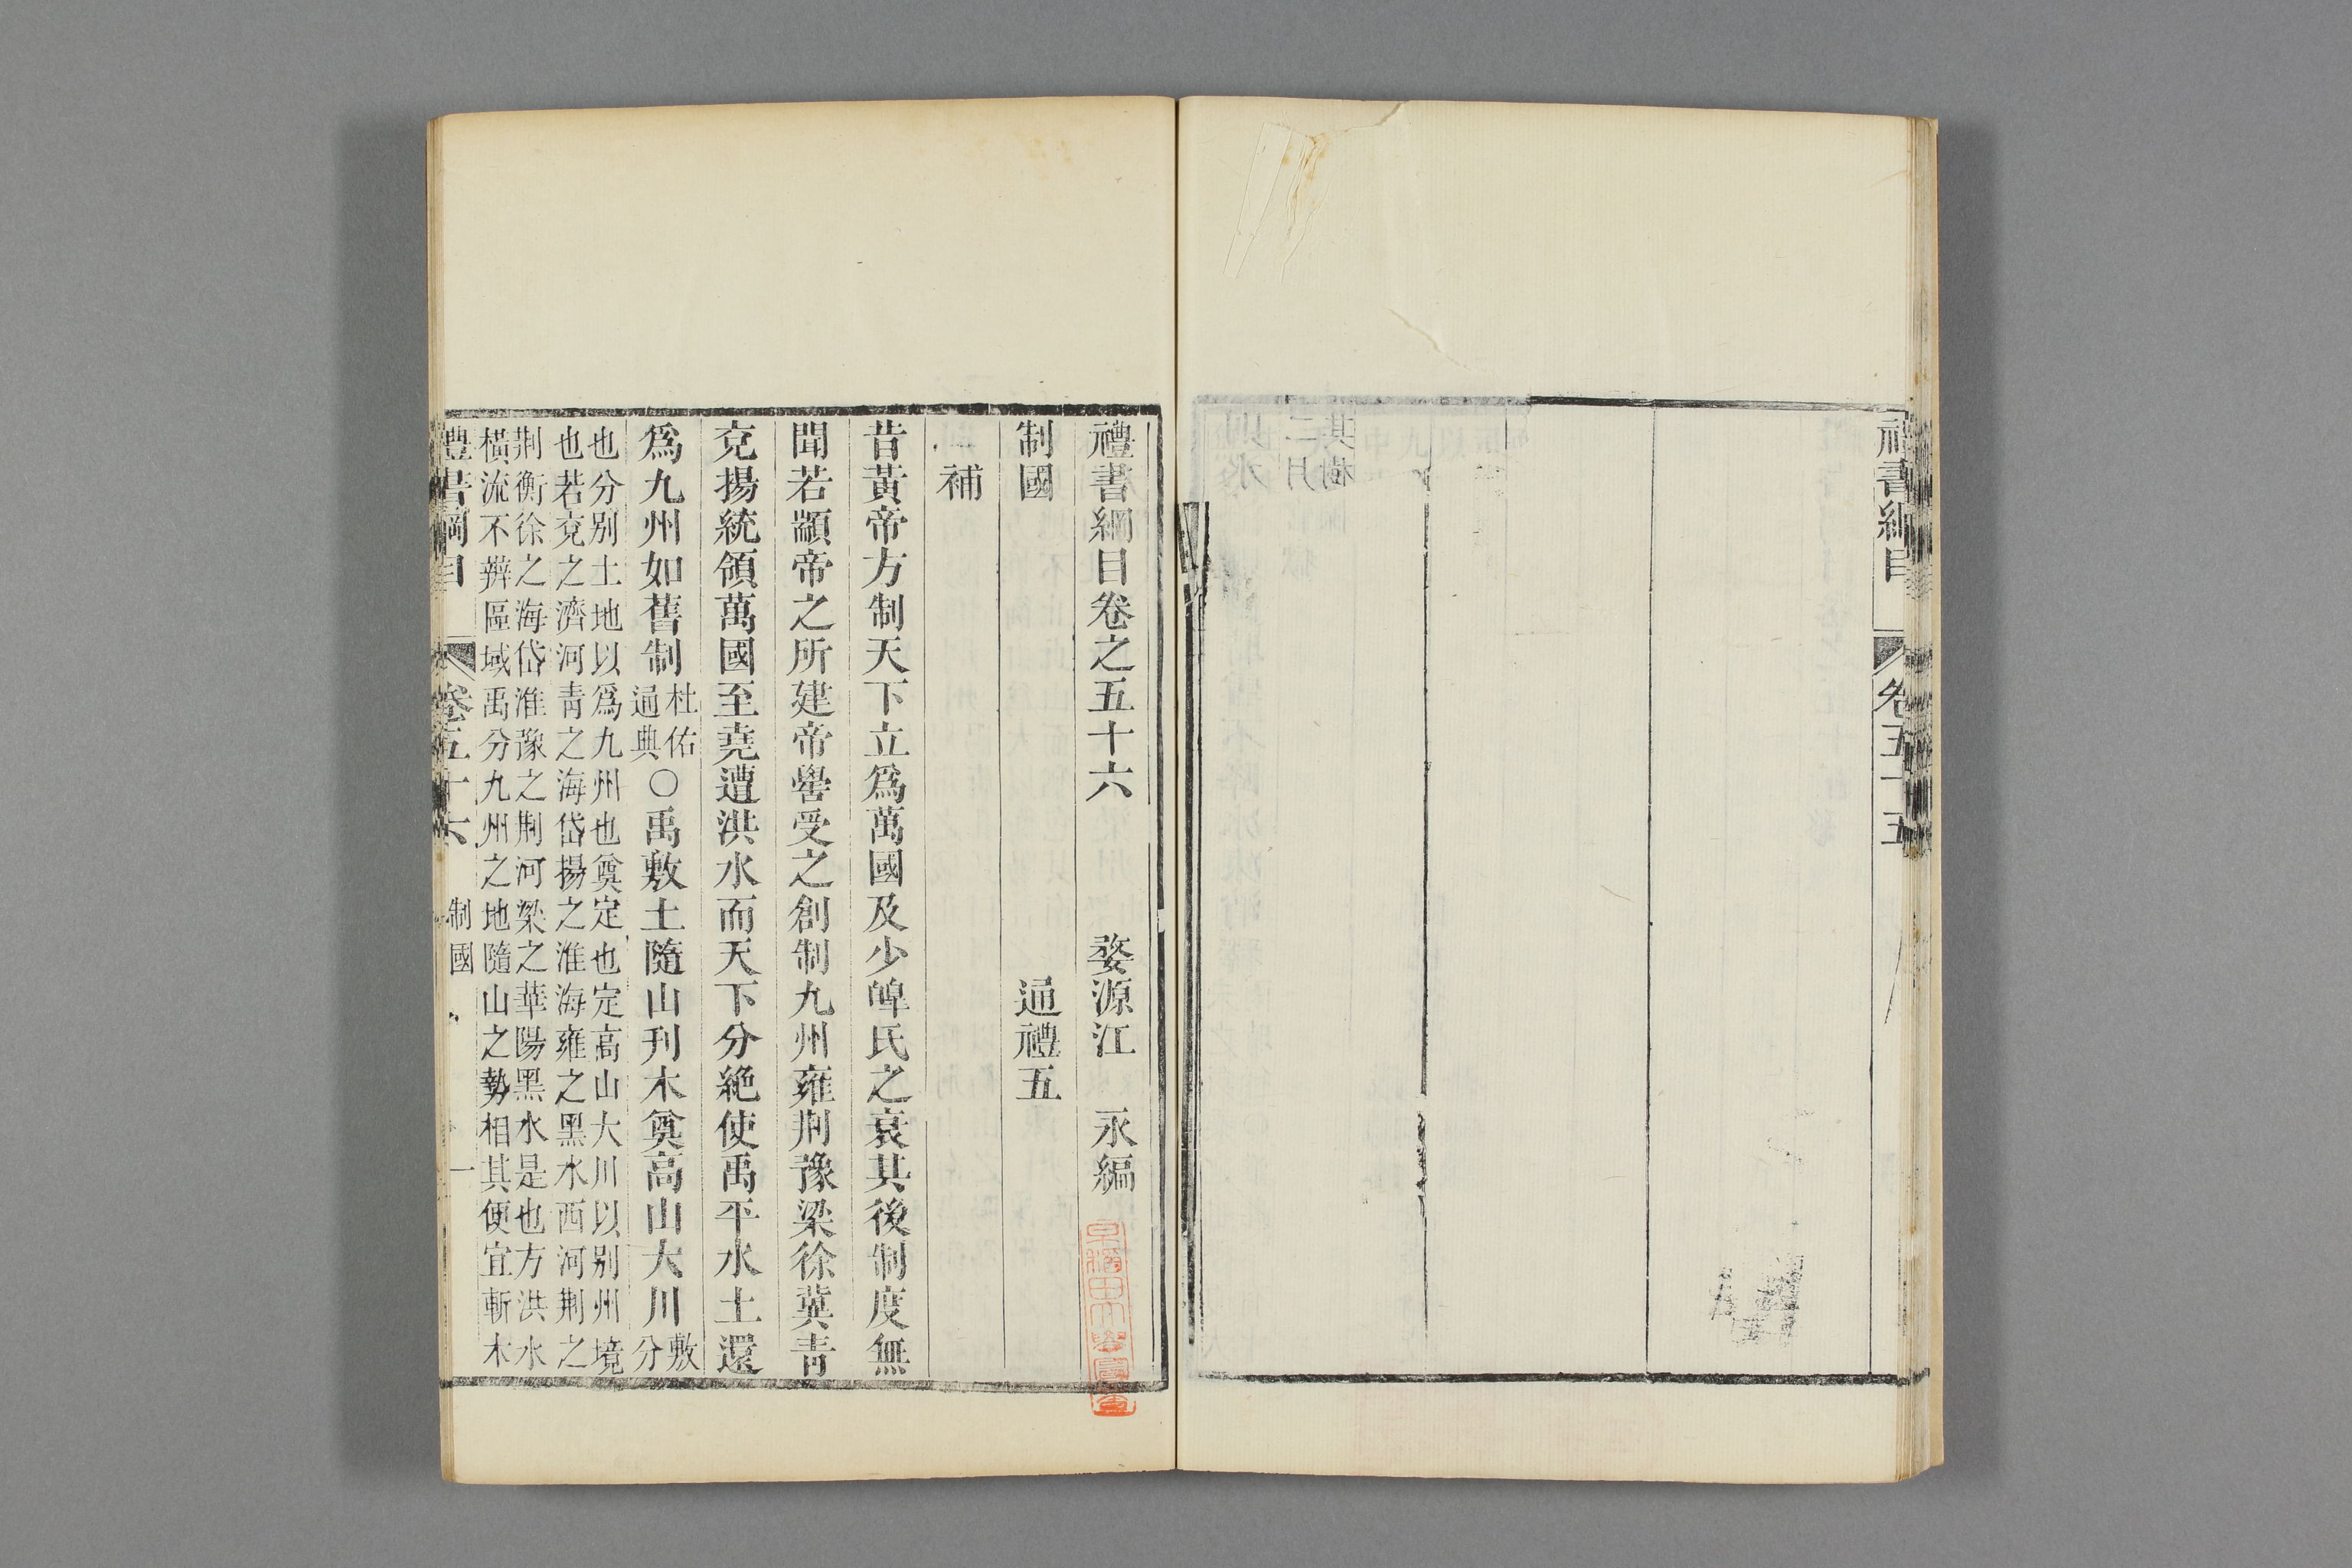 禮書綱目 卷五十五
禮書綱目卷之五十六 婺源江 永編
制國 通禮五
補
昔黃帝方制天下立爲萬國及少皥氏之衰其後制度無
聞若顓帝之所建帝嚳受之創制九州雍荆豫梁徐冀青
兗揚統領萬國至堯遭洪水而天下分絶使禹平水土還
爲九州如舊制杜佑通典〇禹敷土隨山刋木奠高山大川敷分
也分别土地以爲九州也奠定也定高山大川以别州境
也若兗之濟河青之海岱揚之淮海雍之黑水西河荆之
荆衡徐之海岱淮豫之荆河梁之華陽黑水是也方洪水
橫流不辨區域禹分九州之地隨山之勢相其便宜斬木
禮書綱目 卷五十六 制國 一
早稻田大學圖書